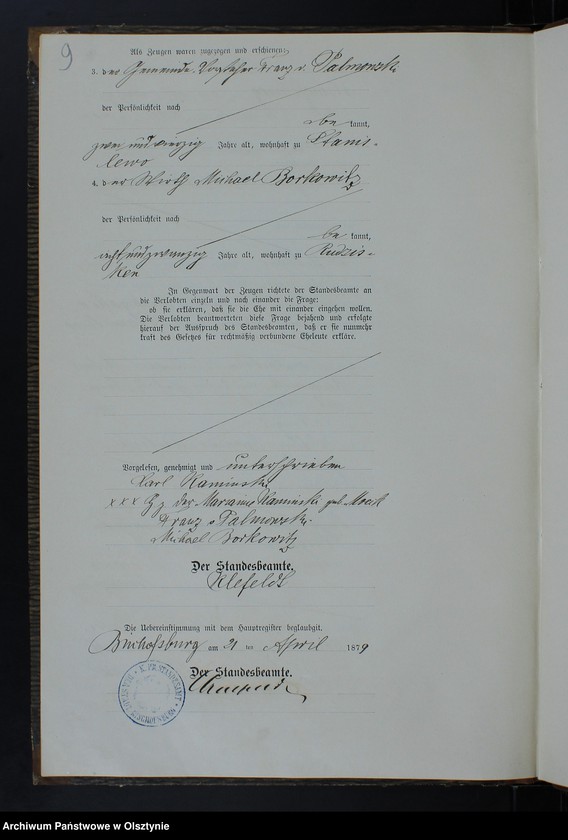 9
Als Zeugen waren zugezogen und erschienen:
3. der Gemeinde-Vorsteher Franz v. Palmowski
der Persönlichkeit nach
be kannt,
zwei und vierzig Jahre alt, wohnhaft zu Stanis-
lewo
4. der Wirth Michael Borkowitz
der Persönlichkeit nach
be kannt,
acht und zwanzig Jahre alt, wohnhaft zu Rudzis-
ken
In Gegenwart der Zeugen richtete der Standesbeamte an
die Verlobten einzeln und nach einander die Frage:
ob sie erklären, daß sie die Ehe mit einander eingehen wollen.
Die Verlobten beantworteten diese Frage bejahend und erfolgte
hierauf der Ausspruch des Standesbeamten, daß er sie nunmehr
kraft des Gesetzes für rechtmäßig verbundene Eheleute erkläre.
Vorgelesen, genehmigt und unterschrieben
Karl Kaminski
xxx Hz. der Marianne Kaminski geb.
Franz v Palmowski
Michael Borkowitz
Der Standesbeamte.
Klefeldt
Die Uebereinstimmung mit dem Hauptregister beglaubigt.
Bischofsburg am 21 ten April 1879
Der Standesbeamte.
Archiwum Państwowe w Olsztynie